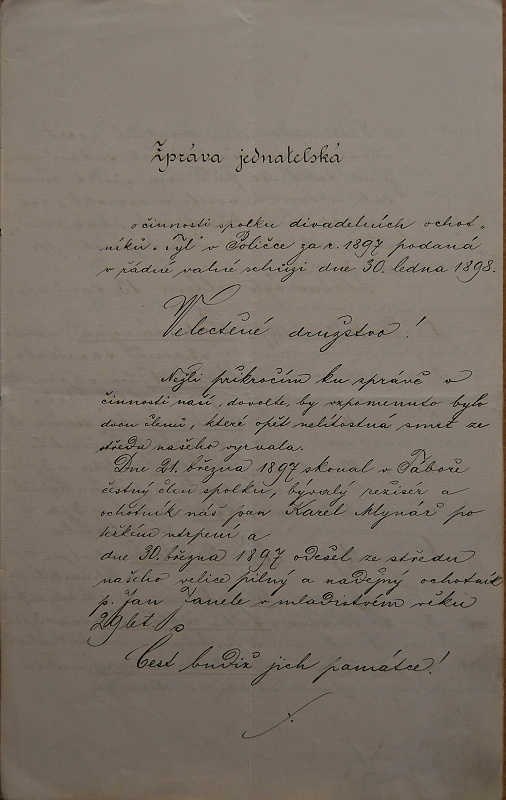 Zpráva jednatelská
o činnosti spolku divadelních ochot„
níků „Tyl" v Poličce za r. 1897 podaná
v řádné valné schůzi dne 30. ledna 1898.
Velectěné družstvo!
Nežli přikročím ku zprávě o
činnosti naší, dovolte, by vzpomenuto bylo
dvou členů, které opět nelítostná smrt ze
středu našeho vyrvala.
Dne 21. března 1897 skonal v Táboře
čestný člen spolku, bývalý režisér a
ochotník náš pan Karel Mlynář po
těžkém utrpení a
dne 30. března 1897 odešel ze středu
našeho velice pilný a nadějný ochotník
p. Jan Janele v mladistvém věku
29 let.
Čest budiž jich památce!